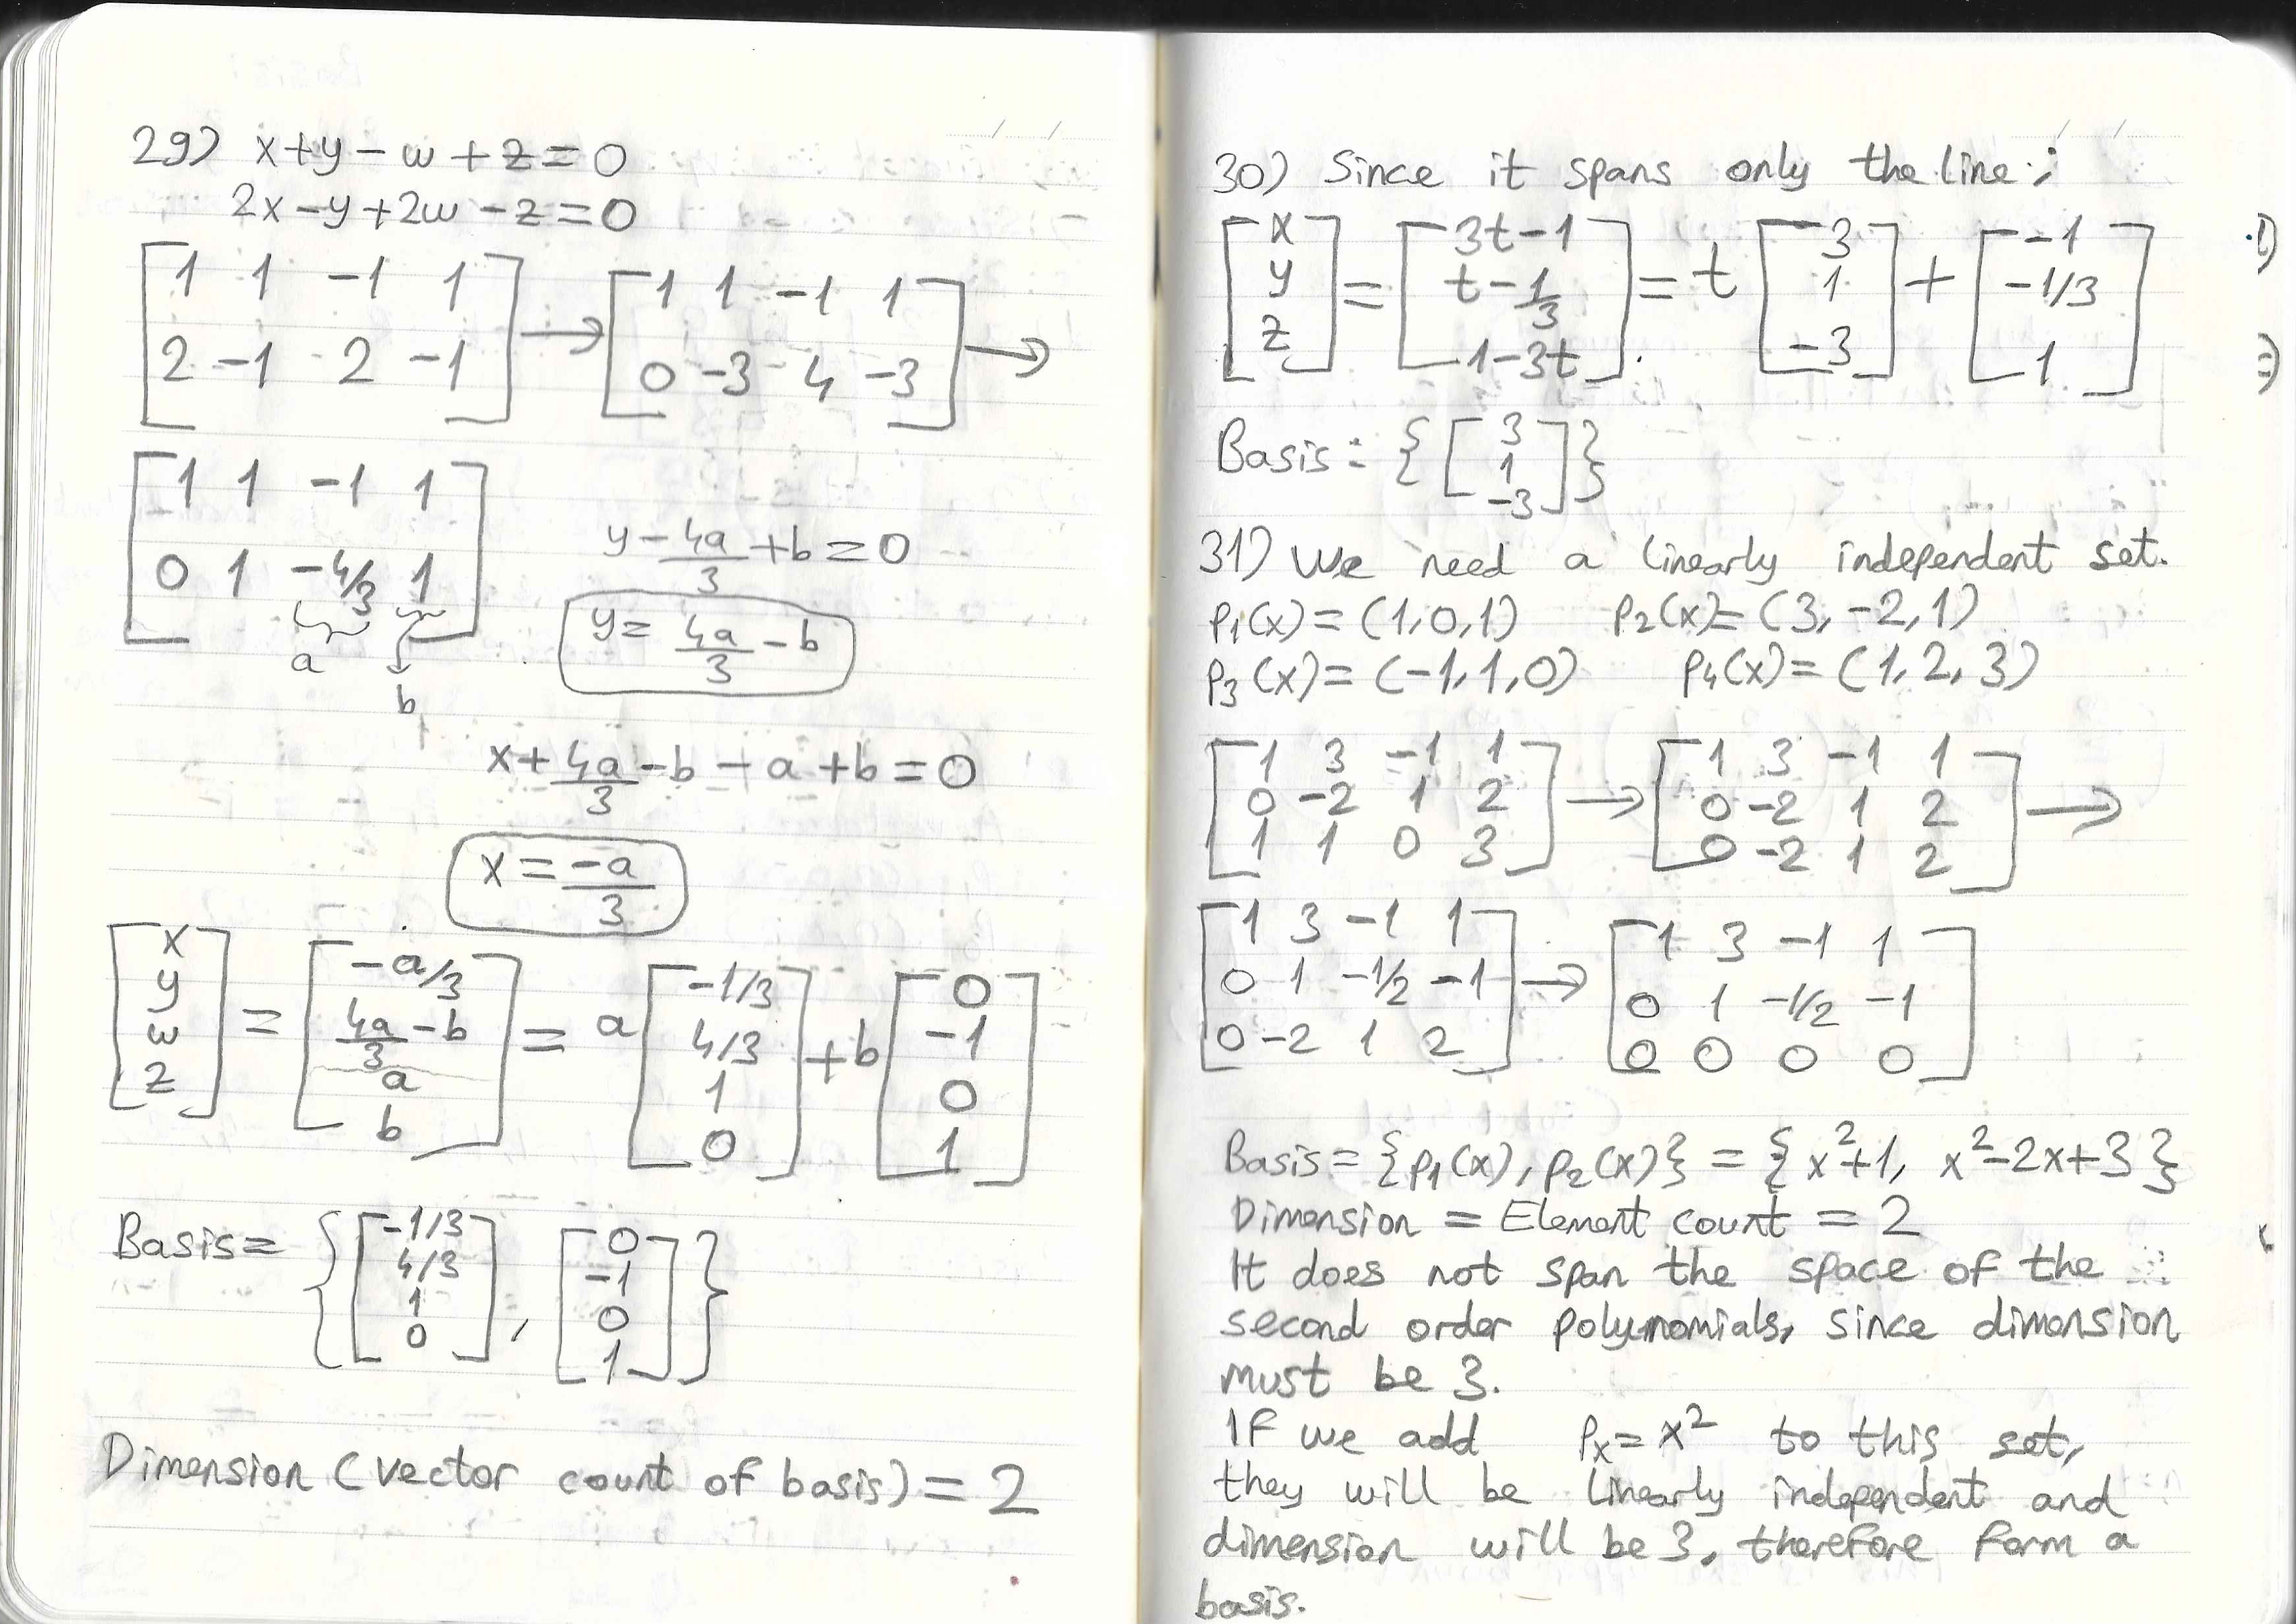 29) x+y-w+z=0
2x-y+2w-z=0
[1 1 -1 1] → [1 1 -1 1] →
[2 -1 2 -1] [0 -3 4 -3]
[1 1 -1 1]
[0 1 -4/3 1]
a b
y-4a/3+b=0
y=4a/3-b
x+4a/3-b-a+b=0
x=-a/3
[x] = [-a/3] = a [-1/3] + b [0]
[y] [4a/3-b] [4/3] [-1]
[w] [a] [1] [0]
[z] [b] [0] [1]
Basis= {[-1/3 4/3 1 0], [0 -1 0 1]}
Dimension (vector count of basis)=2
30) Since it spans only the line:;
[x] = [3t-1] = t [3] + [-1]
[y] [t-1/3] [1] [-1/3]
[z] [1-3t] [-3] [1]
Basis: {[3 1 -3]}
31) We need a linearly independent set.
P1(x)=(1,0,1) P2(x)=(3,-2,1)
P3(x)=(-1,1,0) P4(x)=(1,2,3)
[1 3 -1 1] → [1 3 -1 1] →
[0 -2 1 2] [0 -2 1 2]
[1 1 0 3] [0 -2 1 2]
[1 3 -1 1] → [1 3 -1 1]
[0 1 -1/2 -1] [0 1 -1/2 -1]
[0 -2 1 2] [0 0 0 0]
Basis={P1(x), P2(x)} = {x²+1, x²-2x+3}
Dimension = Element count = 2
It does not span the space of the
second order polynomials, since dimension
must be 3.
If we add Px=x² to this set,
they will be linearly independent and
dimension will be 3, therefore form a
basis.